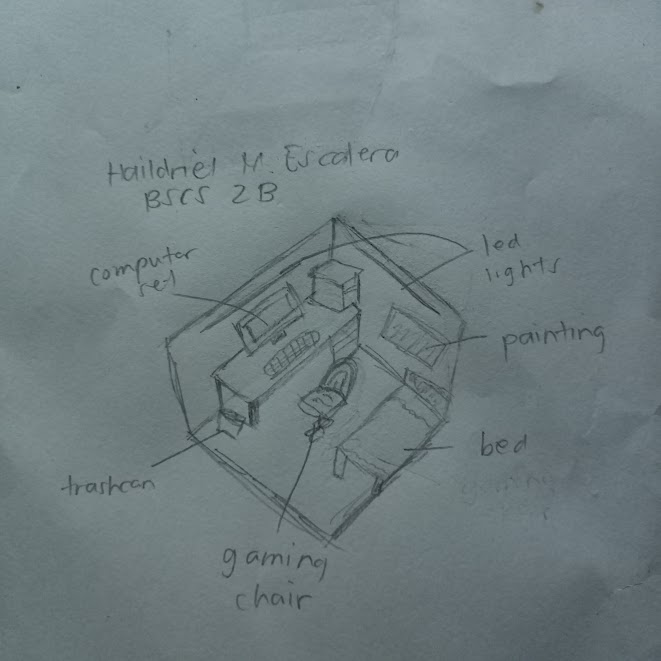 Haildriel M. Escalera
BSCS 2B
computer
set
led
lights
painting
bed
trashcan
gaming
chair